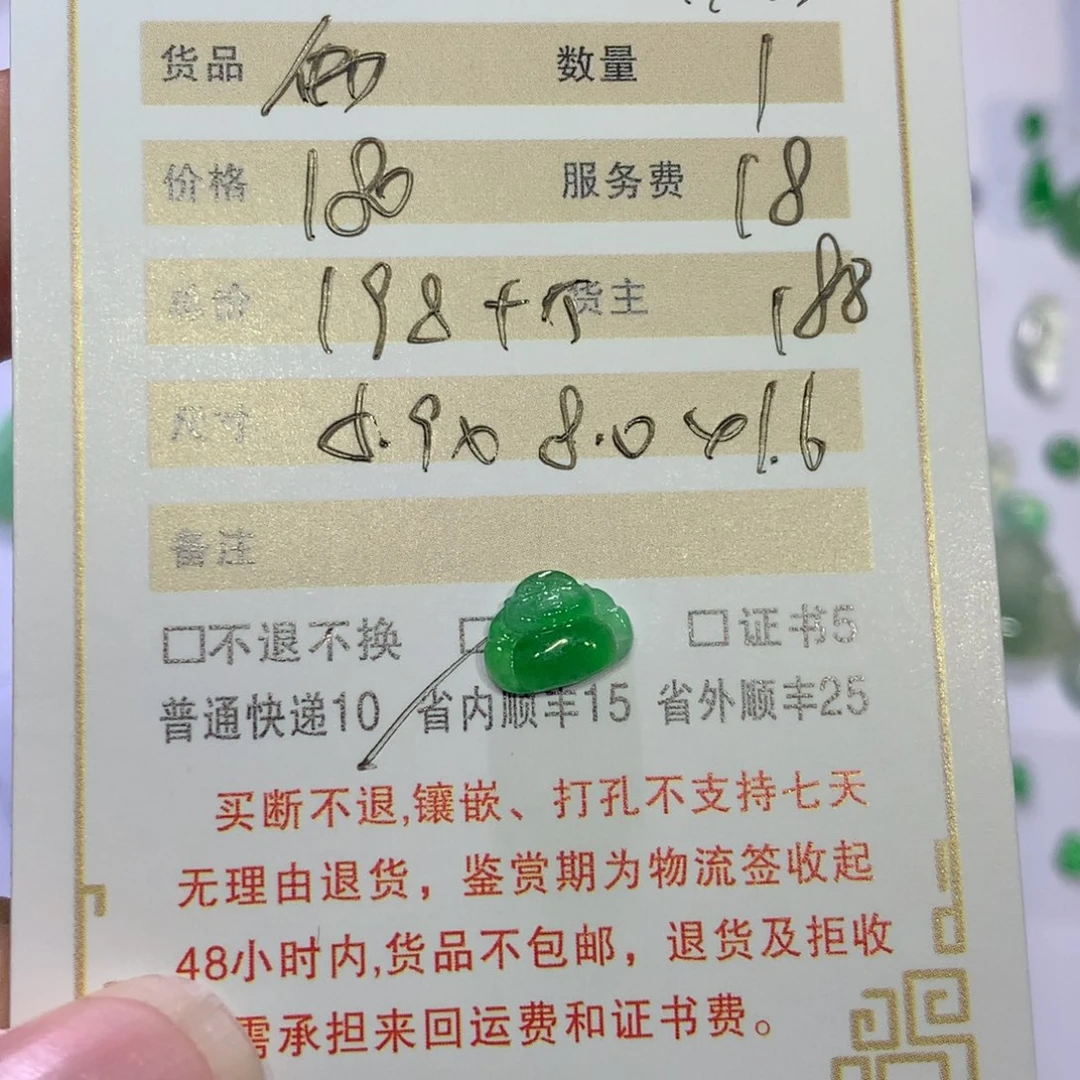 货品 数量 1
价格 180 服务费 18
总价 198+ 货主 188
尺寸 6.9x8.0x1.6
备注
□不退不换 □ □证书5
普通快递10 省内顺丰15 省外顺丰25
买断不退,镶嵌、打孔不支持七天
无理由退货，鉴赏期为物流签收起
48小时内,货品不包邮，退货及拒收
需承担来回运费和证书费。